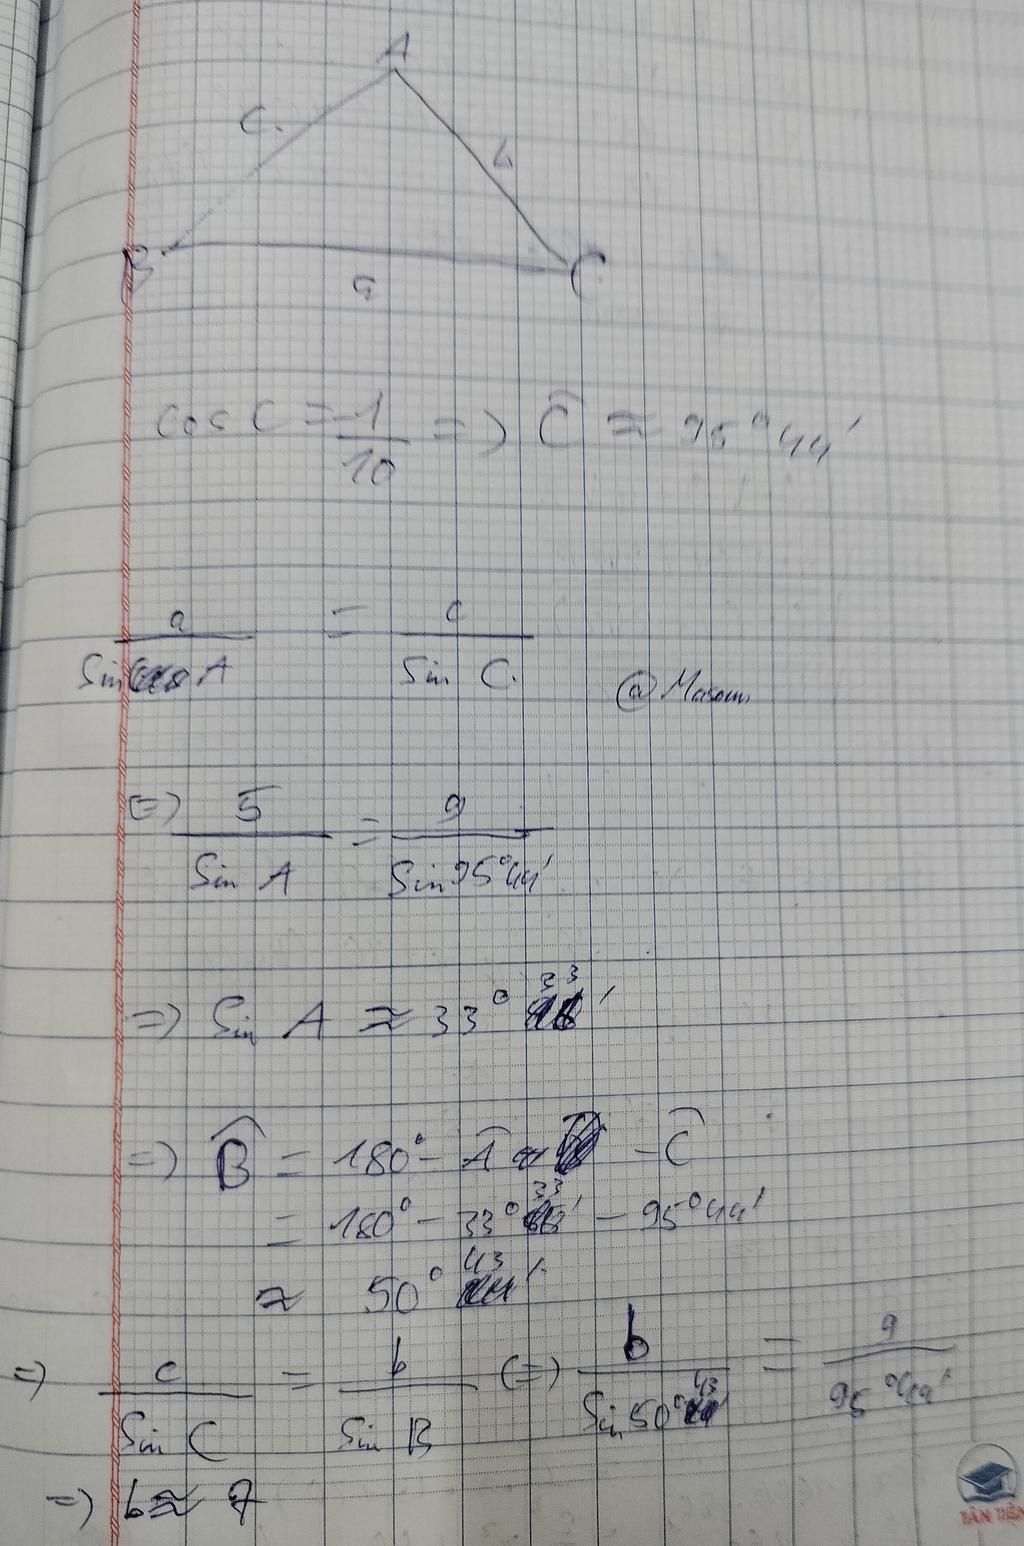 A
c.
b
B
C
a
cos C = -1/10 => Ĉ ≈ 95°44'
a/Sin A = c/Sin C.
@Masow
=> 5/Sin A = 9/Sin 95°44'
=> Sin A ≈ 33°33'
=> B̂ = 180° - Â - Ĉ
= 180° - 33°33' - 95°44'
≈ 50°43'
=> c/Sin C = b/Sin B (=) b/Sin 50°43' = 9/95°44'
=> b ≈ 7
TÂN TIẾN